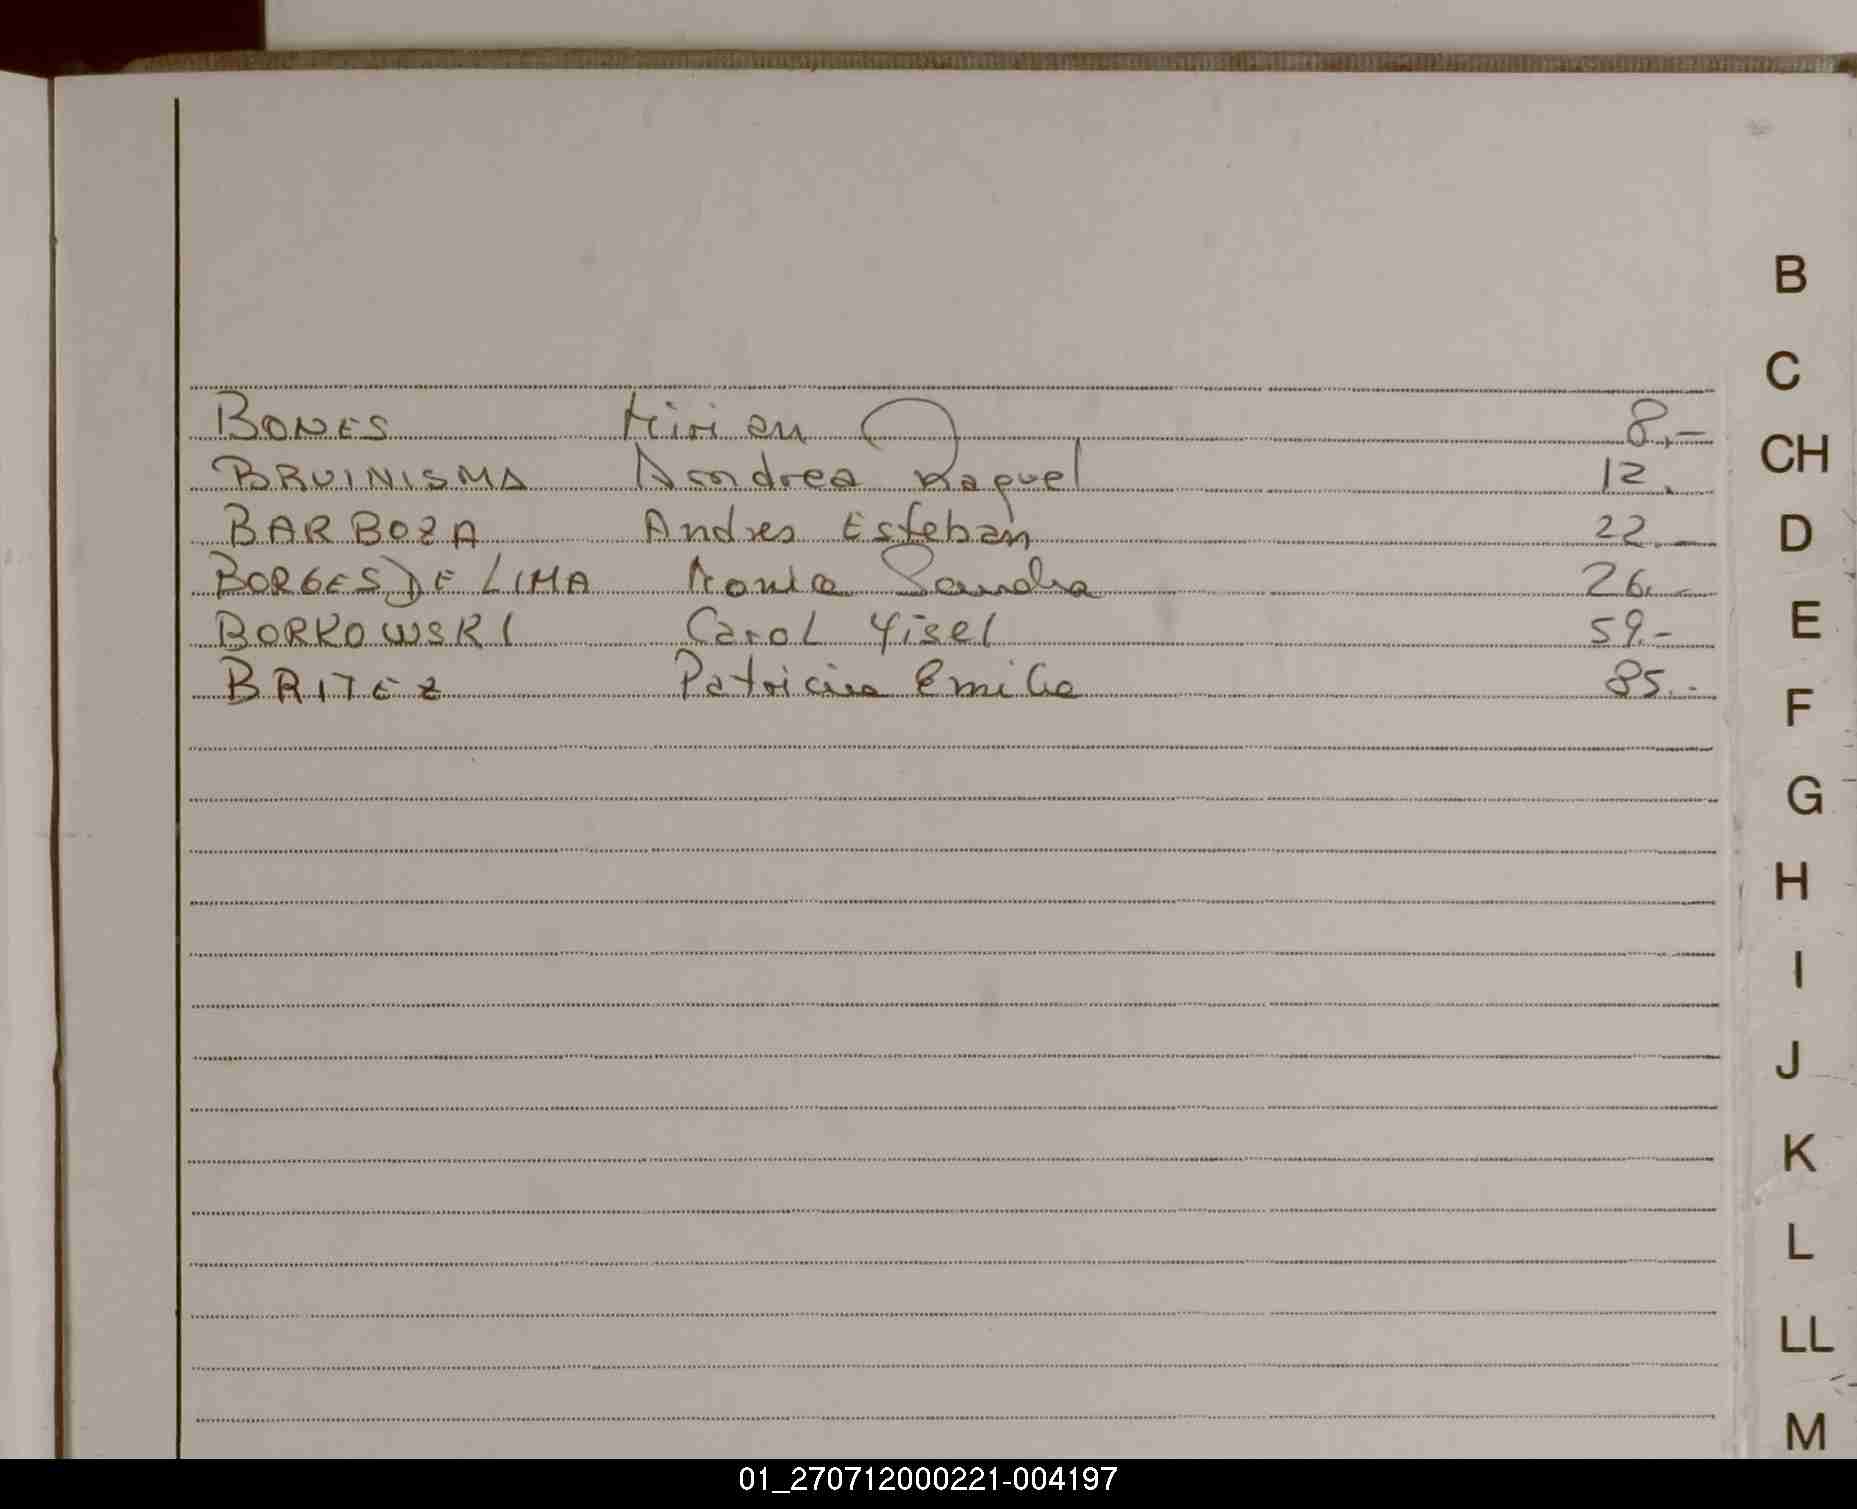 BONES Mirian 8,-
BRUINISMA Andrea Raquel 12.
BARBOZA Andres Esteban 22.-
BORGES DE LIMA Monica Sandra 26.-
BORKOWSKI Carol Yisel 59.-
BRITEZ Patricia Emilia 85.-
B
C
CH
D
E
F
G
H
I
J
K
L
LL
M
01_270712000221-004197